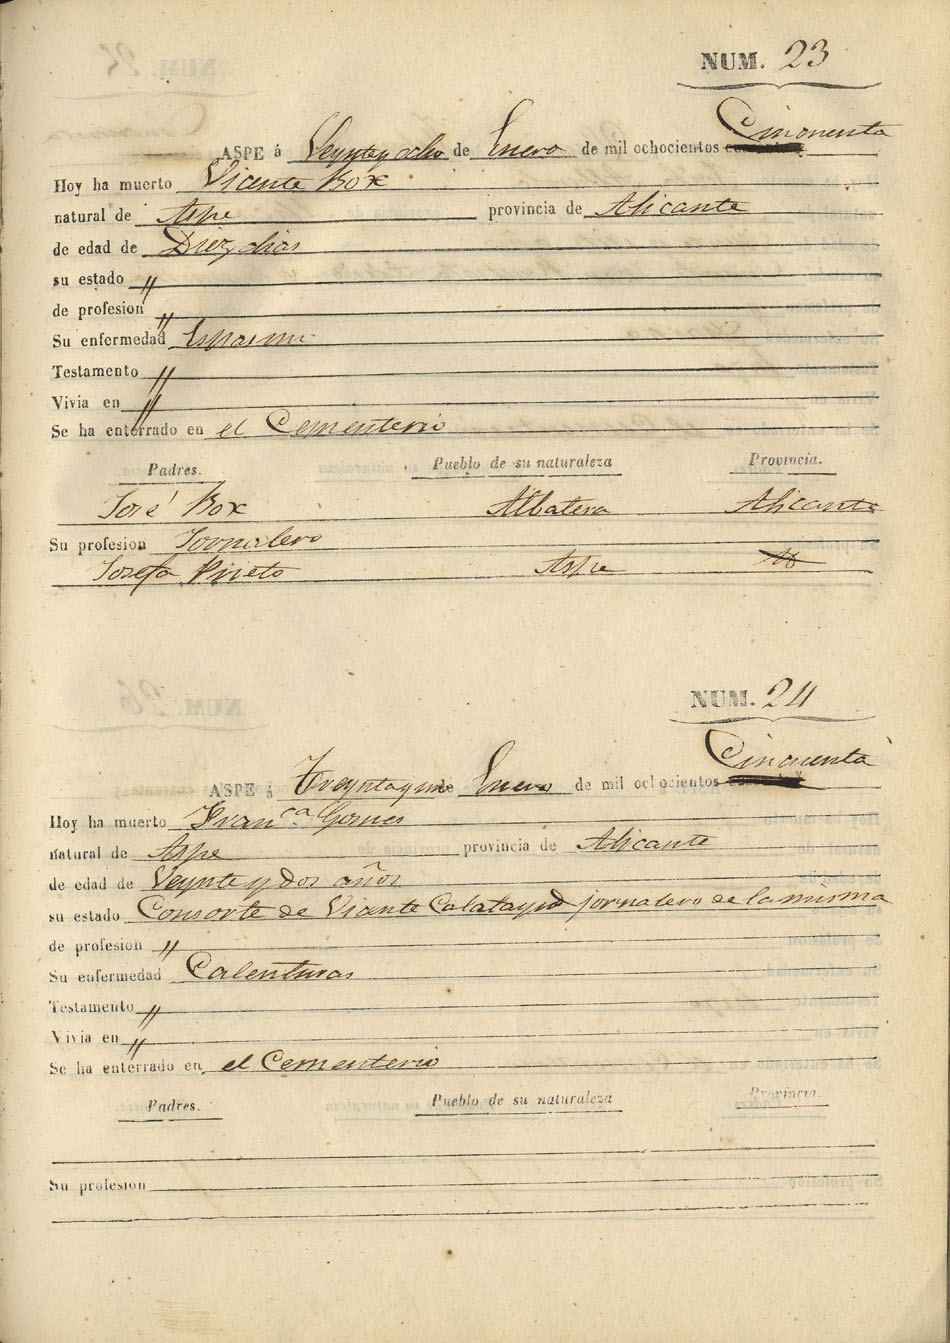 NUM. 23
ASPE á Veynteyocho de Enero de mil ochocientos Cinonenta
Hoy ha muerto Vicente Bóx
natural de Aspe provincia de Alicante
de edad de Diez dias
su estado "
de profesion "
Su enfermedad Espasmo
Testamento "
Vivia en "
Se ha enterrado en el Cementerio
Padres. Pueblo de su naturaleza Provincia.
José Box Albatera Alicante
Su profesion Jornalero
Josefa Prieto Aspe
NUM. 24
ASPE á Treyntayuno de Enero de mil ochocientos Cincuenta
Hoy ha muerto Fran.ca Gomes
natural de Aspe provincia de Alicante
de edad de Veynte y dos años
su estado Consorte de Vicente Calatayud jornalero de la misma
de profesion "
Su enfermedad Calenturas
Testamento "
Vivia en "
Se ha enterrado en el Cementerio
Padres. Pueblo de su naturaleza Provincia.
Su profesion